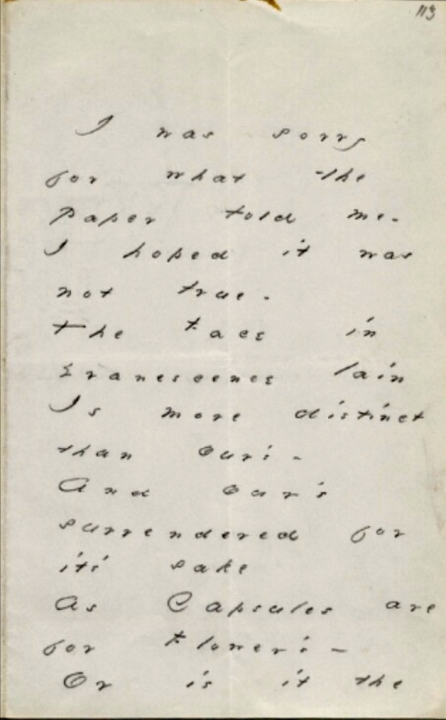 113
I was sorry
for what the
paper told me -
I hoped it was
not true -
The Face in
Evanescence lain
Is more distinct
than our's -
And our's
surrendered for
it's sake
As Capsules are
for Flower's -
Or is it the